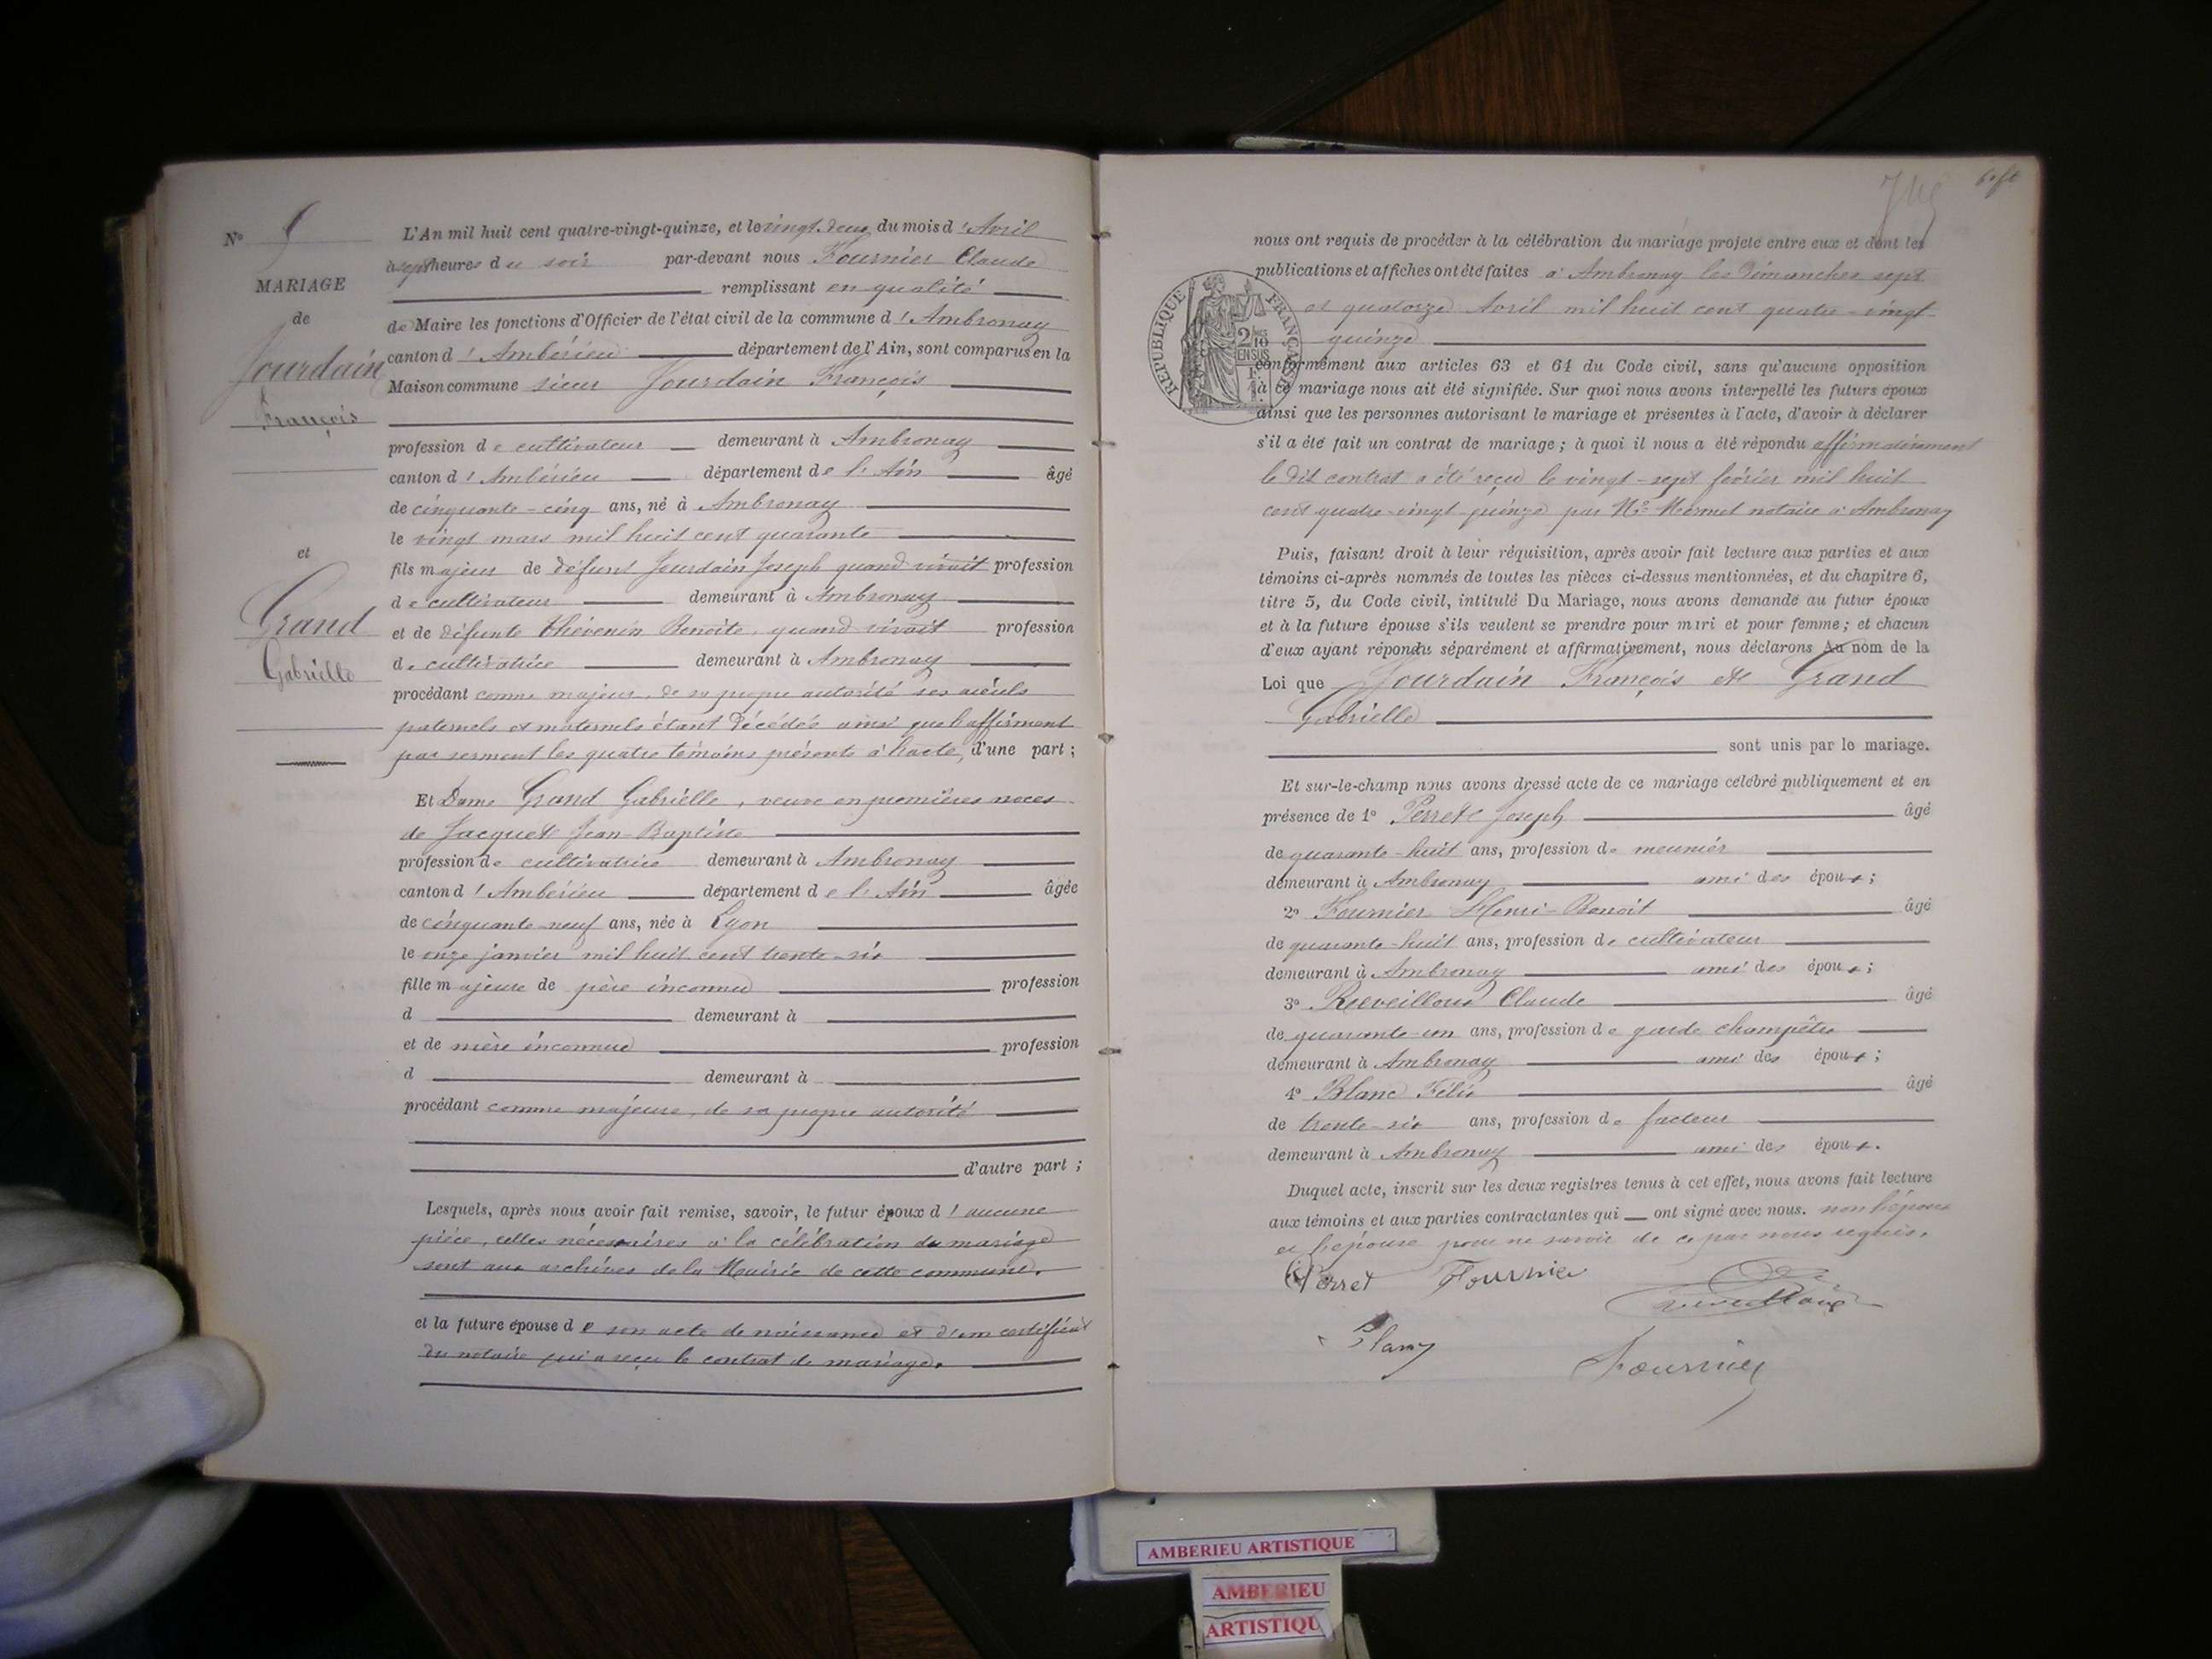 N° 9
MARIAGE
de
Jourdain
François
et
Grand
Gabrielle
L'An mil huit cent quatre-vingt-quinze, et le vingt-deux du mois d'Avril
à sept heures du soir par-devant nous Fournier Claude
remplissant en qualité
de Maire les fonctions d'Officier de l'état civil de la commune d'Ambronay
canton d'Ambérieu département de l'Ain, sont comparus en la
Maison commune sieur Jourdain François
profession de cultivateur demeurant à Ambronay
canton d'Ambérieu département de l'Ain âgé
de cinquante-cinq ans, né à Ambronay
le vingt mars mil huit cent quarante
fils majeur de défunt Jourdain Joseph quand vivait profession
de cultivateur demeurant à Ambronay
et de défunte Thévenin Benoîte, quand vivait profession
de cultivatrice demeurant à Ambronay
procédant comme majeur, de sa propre autorité ses aïeuls
paternels et maternels étant décédés ainsi que l'affirment
par serment les quatre témoins présents à l'acte, d'une part ;
Et Dame Grand Gabrielle, veuve en premières noces
de Jacquet Jean-Baptiste
profession de cultivatrice demeurant à Ambronay
canton d'Ambérieu département de l'Ain âgée
de cinquante-neuf ans, née à Lyon
le onze janvier mil huit cent trente-six
fille majeure de père inconnu profession
d demeurant à
et de mère inconnue profession
d demeurant à
procédant comme majeure, de sa propre autorité
d'autre part ;
Lesquels, après nous avoir fait remise, savoir, le futur époux d'aucune
pièce, celles nécessaires à la célébration du mariage
sont aux archives de la Mairie de cette commune.
et la future épouse de son acte de naissance et d'un certificat
du notaire qui a reçu le contrat de mariage.
nous ont requis de procéder à la célébration du mariage projeté entre eux et dont les
publications et affiches ont été faites à Ambronay les Dimanches sept
et quatorze Avril mil huit cent quatre-vingt-
quinze
REPUBLIQUE FRANÇAISE
2/10
EN SUS
conformément aux articles 63 et 64 du Code civil, sans qu'aucune opposition
à ce mariage nous ait été signifiée. Sur quoi nous avons interpellé les futurs époux
ainsi que les personnes autorisant le mariage et présentes à l'acte, d'avoir à déclarer
s'il a été fait un contrat de mariage ; à quoi il nous a été répondu affirmativement
le dit contrat a été reçu le vingt-sept février mil huit
cent quatre-vingt-quinze par Me Mermet notaire à Ambronay
Puis, faisant droit à leur réquisition, après avoir fait lecture aux parties et aux
témoins ci-après nommés de toutes les pièces ci-dessus mentionnées, et du chapitre 6,
titre 5, du Code civil, intitulé Du Mariage, nous avons demandé au futur époux
et à la future épouse s'ils veulent se prendre pour mari et pour femme ; et chacun
d'eux ayant répondu séparément et affirmativement, nous déclarons Au nom de la
Loi que Jourdain François et Grand
Gabrielle
sont unis par le mariage.
Et sur-le-champ nous avons dressé acte de ce mariage célébré publiquement et en
présence de 1° Perret Joseph âgé
de quarante-huit ans, profession de meunier
demeurant à Ambronay ami des époux ;
2° Fournier Henri-Benoit âgé
de quarante-huit ans, profession de cultivateur
demeurant à Ambronay ami des époux ;
3° Claude âgé
de quarante-un ans, profession de garde champêtre
demeurant à Ambronay ami des époux ;
4° Blanc Félix âgé
de trente-six ans, profession de facteur
demeurant à Ambronay ami des époux.
Duquel acte, inscrit sur les deux registres tenus à cet effet, nous avons fait lecture
aux témoins et aux parties contractantes qui ont signé avec nous. non l'époux
et l'épouse pour ne savoir de ce par nous requis.
Perret Fournier
Blanc
Fournier
AMBERIEU ARTISTIQUE
AMBERIEU
ARTISTIQU